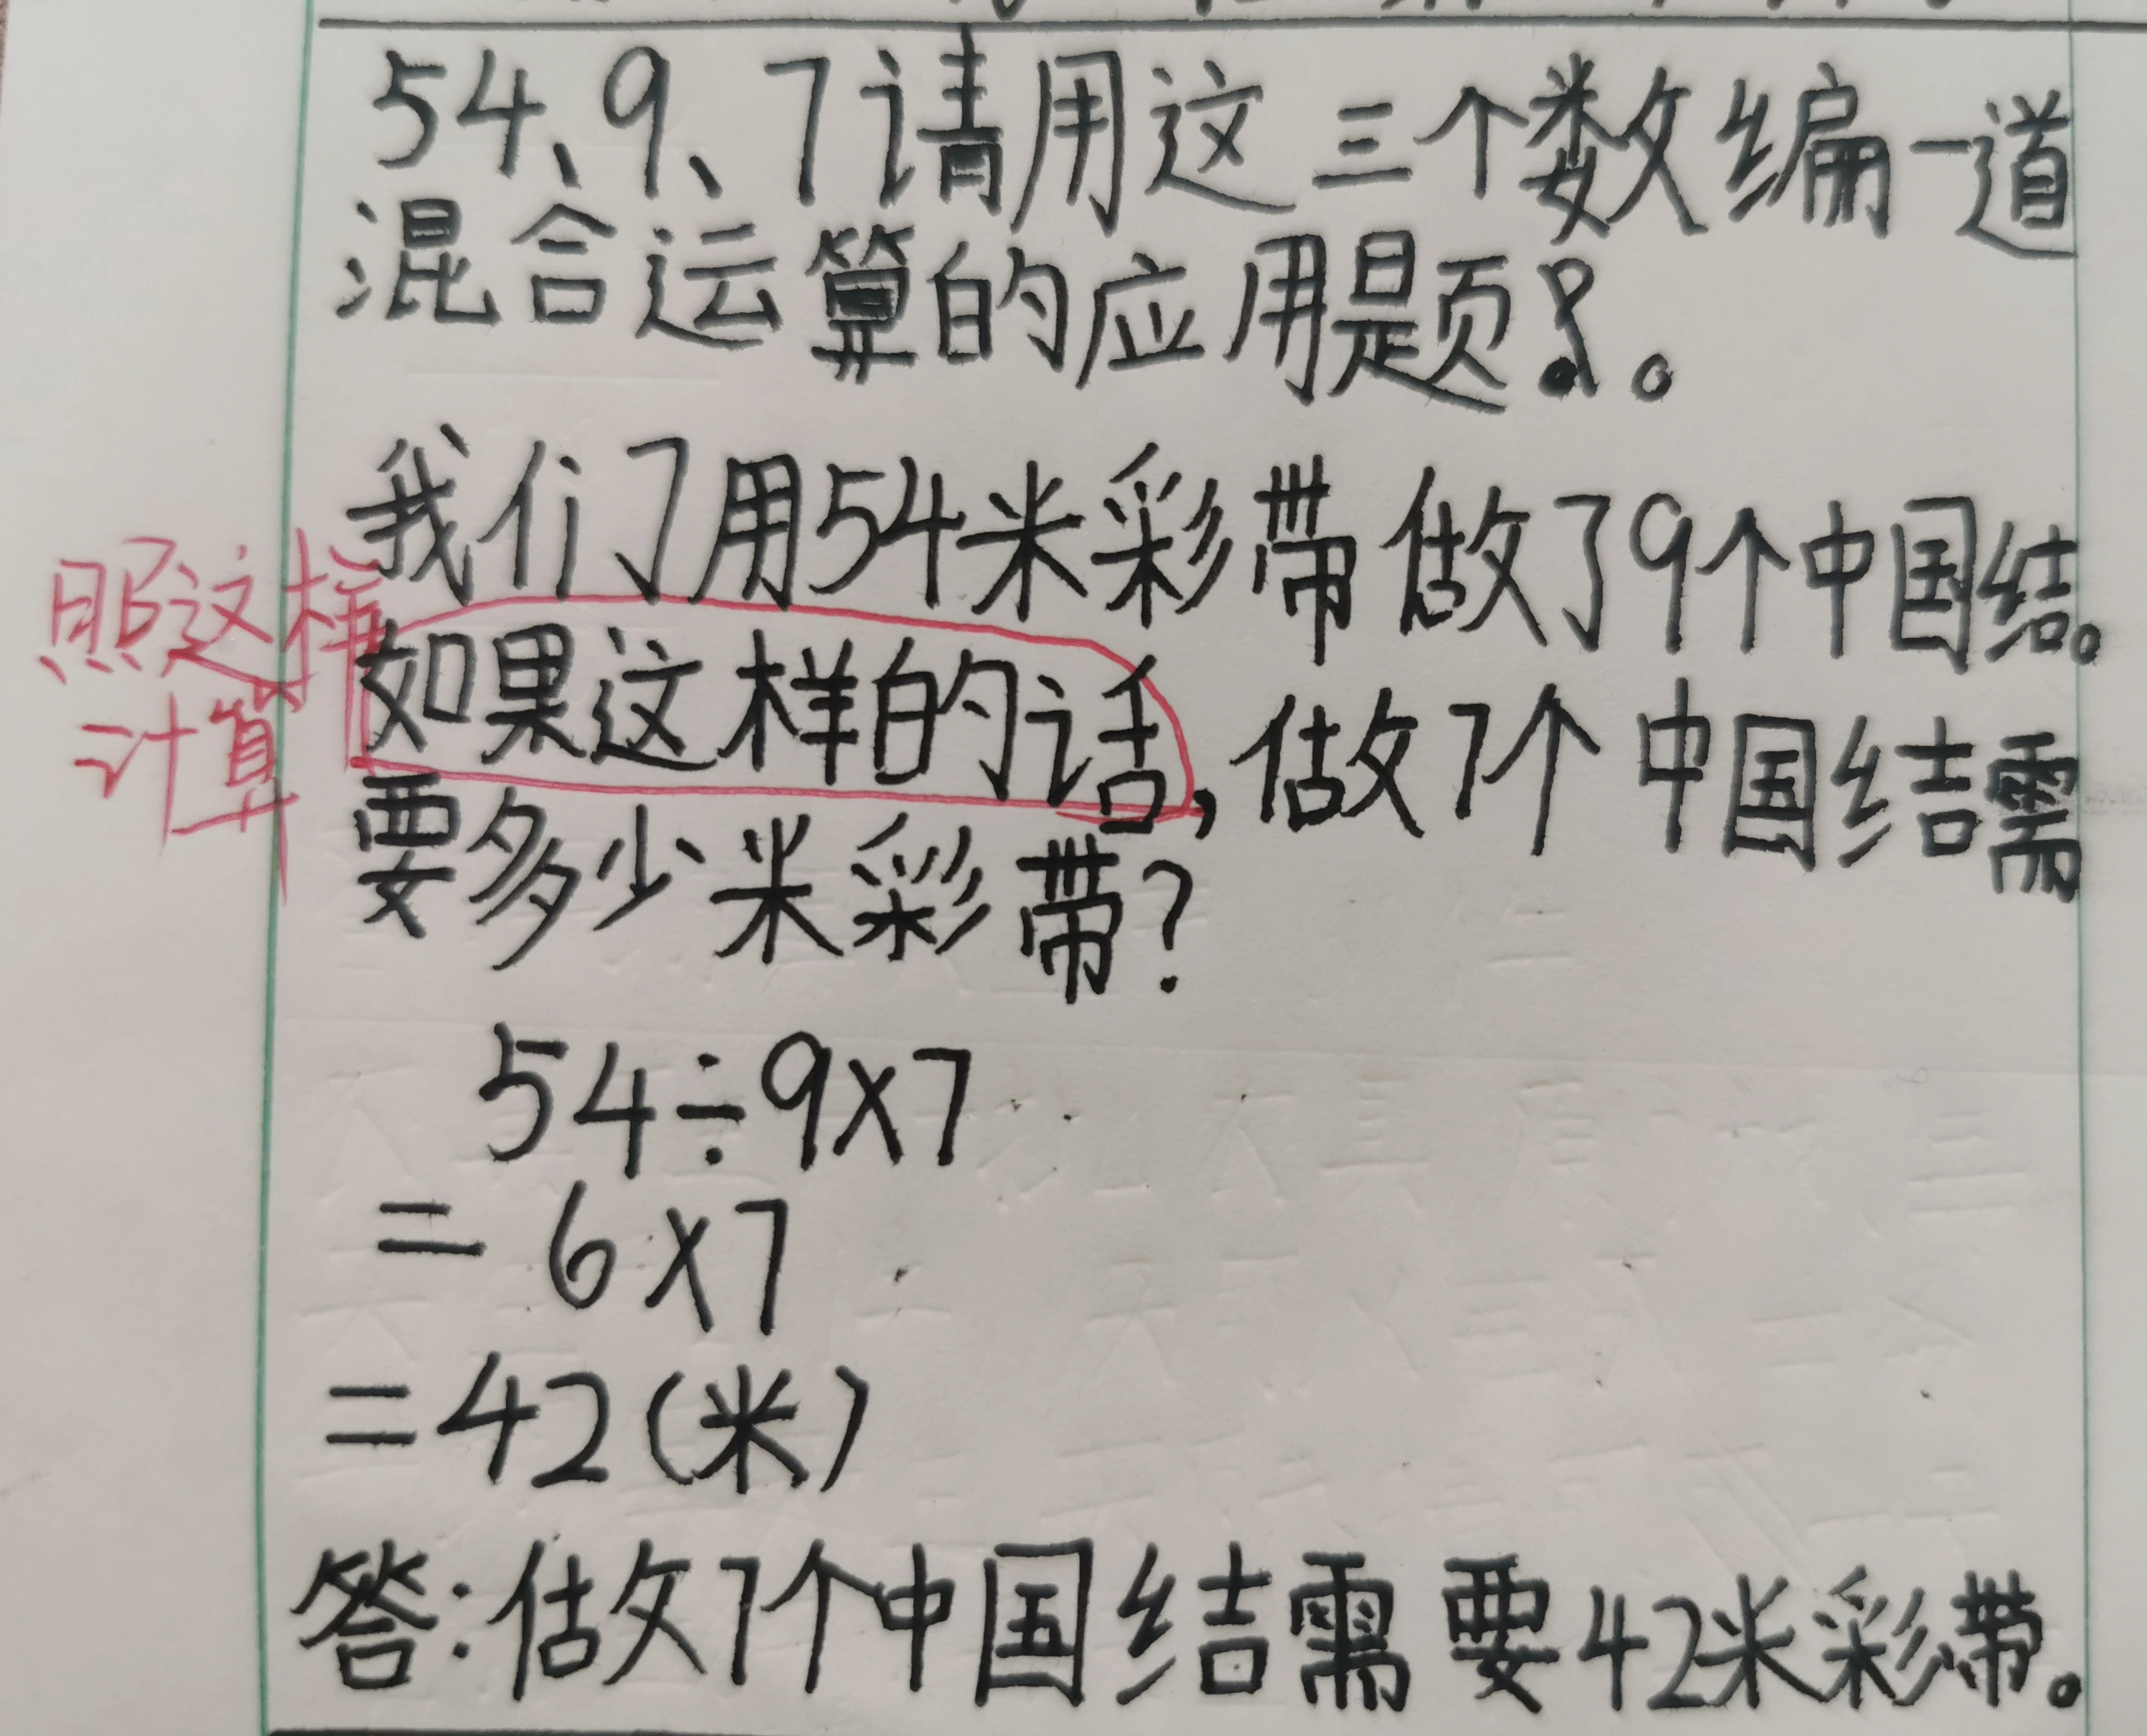 54、9、7请用这三个数编一道
混合运算的应用题。
我们了用54米彩带做了9个中国结。
照这样
计算
如果这样的话,做7个中国结需
要多少米彩带?
54÷9×7
=6×7
=42(米)
答:做7个中国结需要42米彩带。